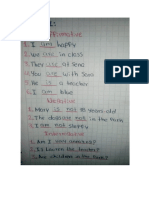 Affirmative
1. I am happy
2. We are in class
3. They are at Send
4. You are with Soni
5. He is a teacher
6. I am blue
Negative
1. Mary is not 18 years old
2. The dogs are not in the
3. I am not sleepy
Interrogative
1. Am I
2. Is Laura the teacher?
3. Are children in the park?